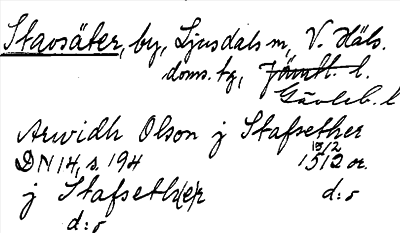 Stavsäter, by, Ljusdals sn, V. Häls.
doms. tg, Jämtl. l.
Gävleb. l
Arwidh Olson j Stafsether
DN 14, s. 194 15/2 1512 or.
j Stafseth(e)r d:o
d:o